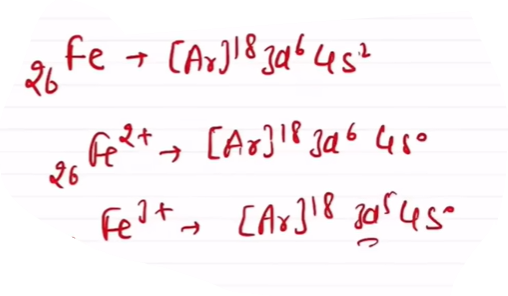 ₂₆Fe → [Ar]¹⁸ 3d⁶ 4s²
₂₆Fe²⁺ → [Ar]¹⁸ 3d⁶ 4s⁰
Fe³⁺ → [Ar]¹⁸ 3d⁵ 4s⁰